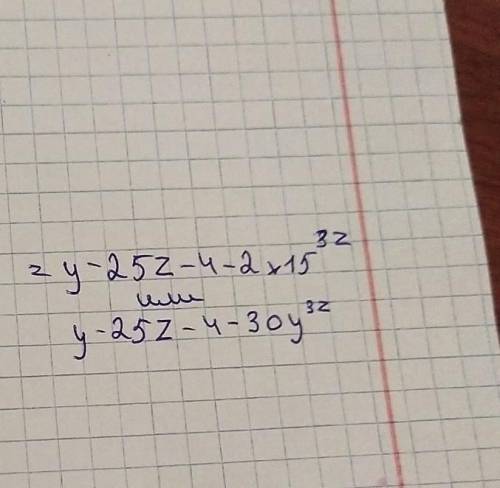 = y - 25z - 4 - 2 × 15^3z
или
y - 25z - 4 - 30y^3z